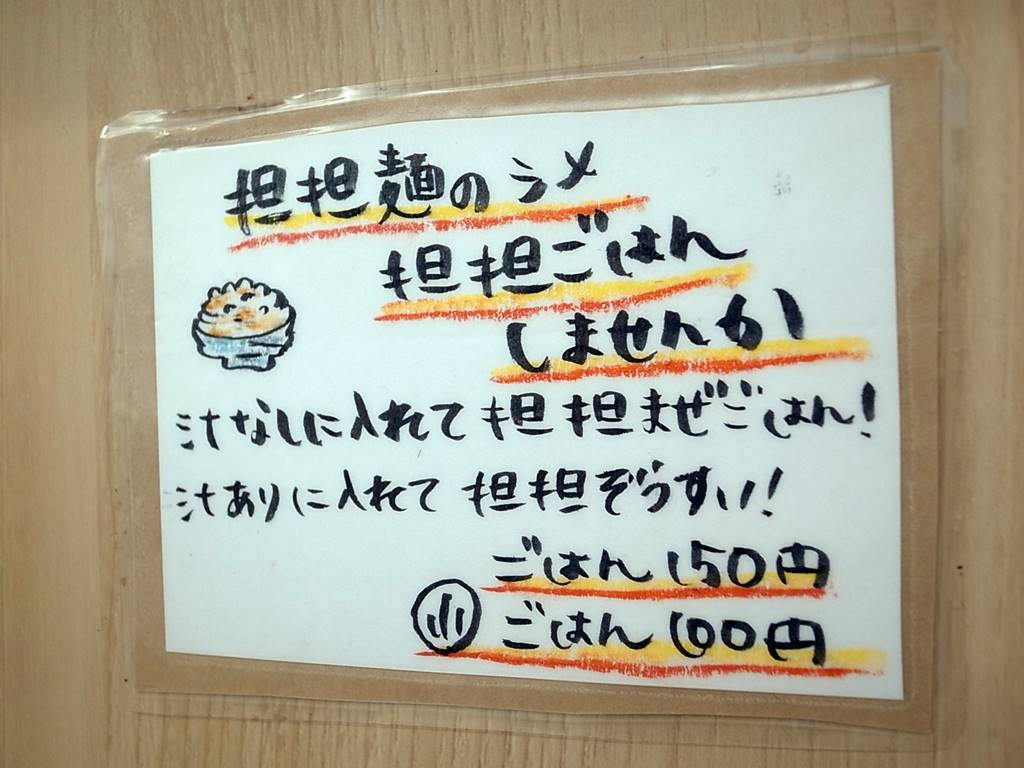 担担麺のシメ
担担ごはん
しませんか
汁なしに入れて担担まぜごはん!
汁ありに入れて担担ぞうすい!
ごはん150円
小ごはん100円